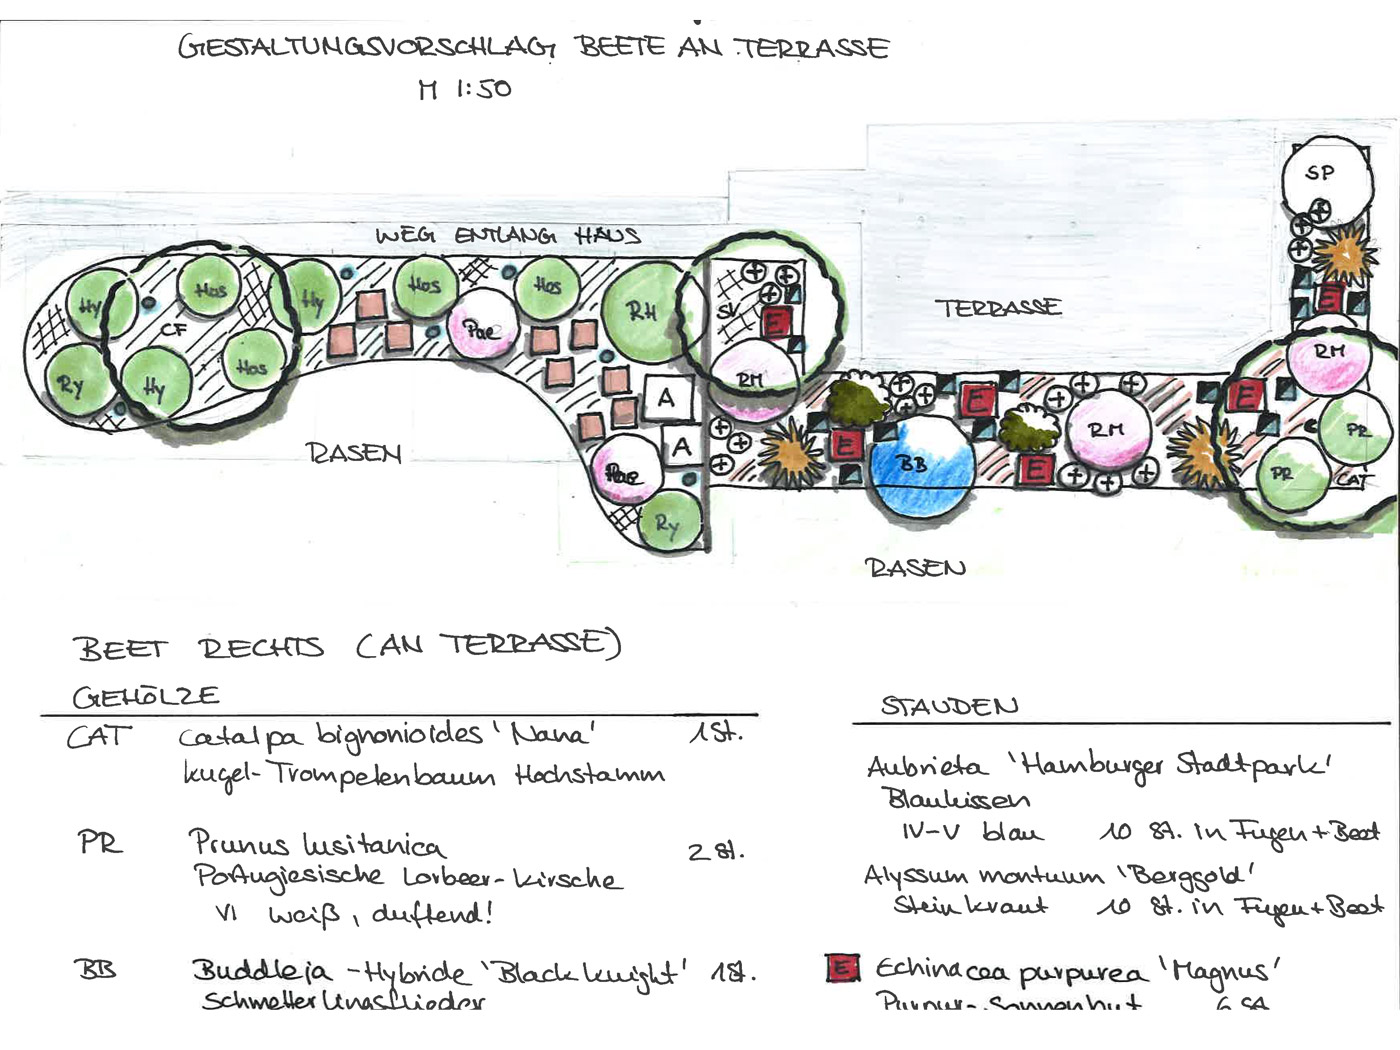 GESTALTUNGSVORSCHLAG BEETE AN TERRASSE
M 1:50
SP
WEG ENTLANG HAUS
TERRASSE
Hy
CF
Hos
Hy
Hos
Hos
RH
SV
E
E
Pae
RM
RM
Ry
Hy
Hos
A
E
E
RM
PR
A
E
BB
E
PR
CAT
Pae
Ry
RASEN
RASEN
BEET RECHTS (AN TERRASSE)
GEHÖLZE
CAT Catalpa bignonioides 'Nana' 1 St.
Kugel-Trompetenbaum Hochstamm
PR Prunus lusitanica 2 St.
Portugiesische Lorbeer-Kirsche
VI weiß, duftend!
BB Buddleja -Hybride 'Black knight' 1 St.
Schmetterlingsflieder
STAUDEN
Aubrieta 'Hamburger Stadtpark'
Blaukissen
IV-V blau 10 St. in Fugen + Beet
Alyssum montuum 'Berggold'
Steinkraut 10 St. in Fugen + Beet
E Echinacea purpurea 'Magnus'
Purpur-Sonnenhut 6 St.